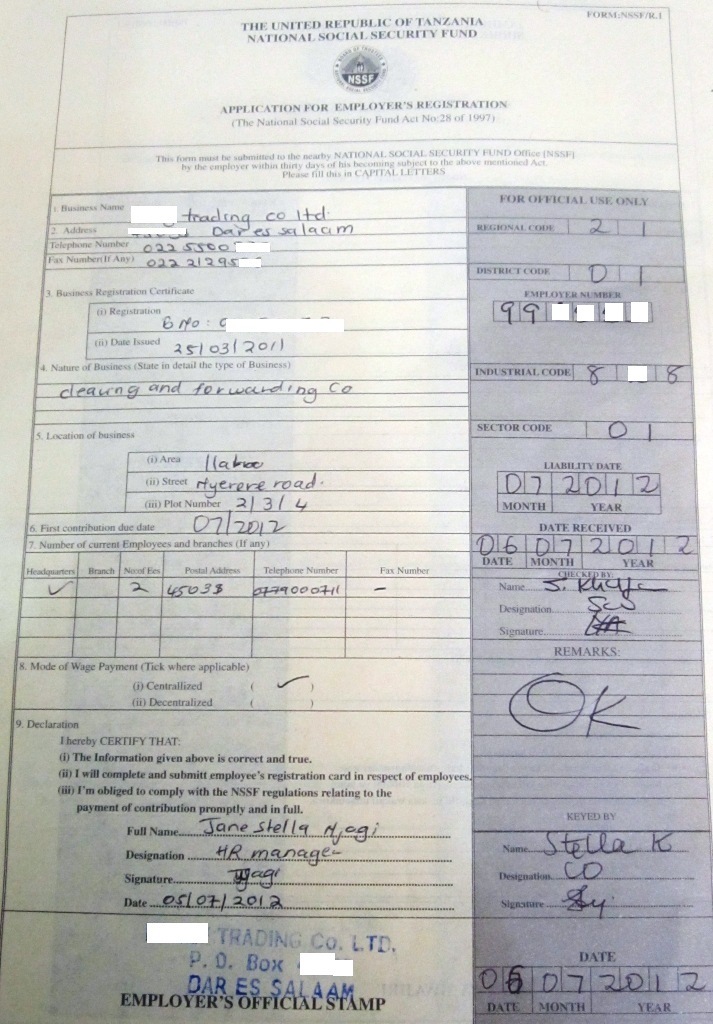 FORM:NSSF/R.1
THE UNITED REPUBLIC OF TANZANIA
NATIONAL SOCIAL SECURITY FUND
NSSF
APPLICATION FOR EMPLOYER'S REGISTRATION
(The National Social Security Fund Act No:28 of 1997)
This form must be submitted to the nearby NATIONAL SOCIAL SECURITY FUND Office [NSSF]
by the employer within thirty days of his becoming subject to the above mentioned Act.
Please fill this in CAPITAL LETTERS
1. Business Name trading co ltd.
2. Address Dar es salaam
Telephone Number 022 5500
Fax Number(If Any) 022 21295
3. Business Registration Certificate
(i) Registration B No:
(ii) Date Issued 25/03/2011
4. Nature of Business (State in detail the type of Business)
clearing and forwarding Co
5. Location of business
(i) Area Ilala
(ii) Street Nyerere road.
(iii) Plot Number 2/3/4
6. First contribution due date 07/2012
7. Number of current Employees and branches (If any)
Headquarters Branch No:of Ees Postal Address Telephone Number Fax Number
✓ 2 45038 0779000711 -
8. Mode of Wage Payment (Tick where applicable)
(i) Centrallized ( ✓ )
(ii) Decentralized ( )
9. Declaration
I hereby CERTIFY THAT:
(i) The Information given above is correct and true.
(ii) I will complete and submitt employee's registration card in respect of employees.
(iii) I'm obliged to comply with the NSSF regulations relating to the
payment of contribution promptly and in full.
Full Name Jane stella Njagi
Designation HR manager
Signature Njagi
Date 05/07/2012
TRADING Co. LTD.
P. O. Box
DAR ES SALAAM
EMPLOYER'S OFFICIAL STAMP
FOR OFFICIAL USE ONLY
REGIONAL CODE 2 1
DISTRICT CODE 0 1
EMPLOYER NUMBER
99
INDUSTRIAL CODE 8 8
SECTOR CODE 0 1
LIABILITY DATE
07 2012
MONTH YEAR
DATE RECEIVED
06 07 2012
DATE MONTH YEAR
CHECKED BY:
Name S.
Designation
Signature
REMARKS:
OK
KEYED BY
Name Stella K
Designation CO
Signature
DATE
06 07 2012
DATE MONTH YEAR